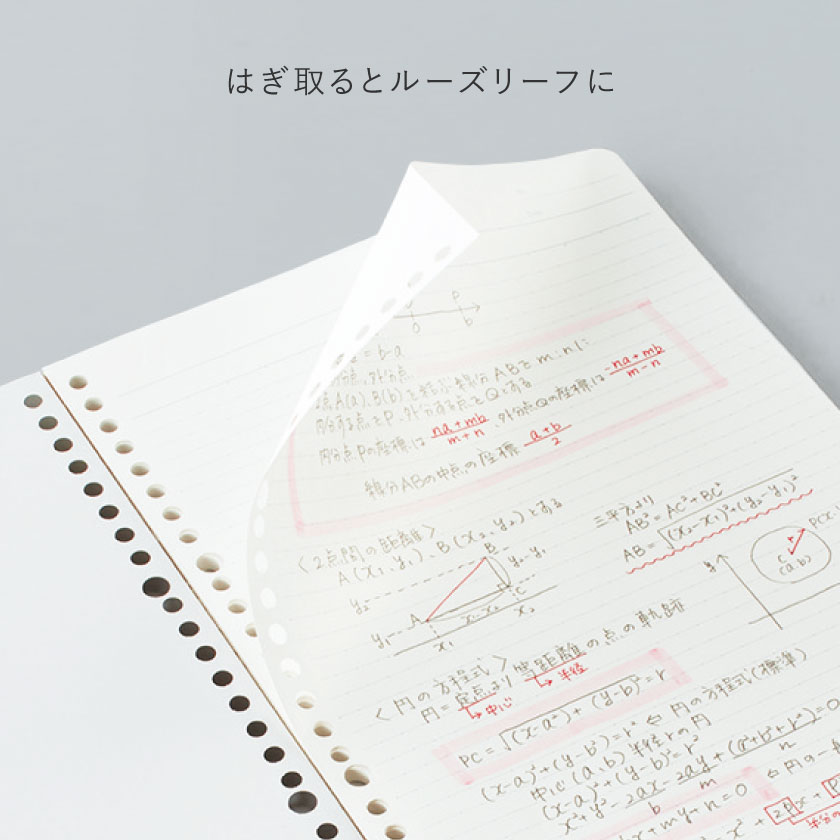 はぎ取るとルーズリーフに
P
b
= b-a
内分点、外分点
点A(a)、B(b)を結ぶ線分ABをm:nに
内分する点をP、外分する点をQとする
内分点Pの座標は na+mb/m+n、外分点Qの座標は -na+mb/m-n
線分ABの中点の座標 a+b/2
<2点間の距離>
A(x₁、y₁)、B(x₂、y₂)とする
三平方より
AB² = AC² + BC²
AB = √(x₂-x₁)²+(y₂-y₁)²
B
y₂
y₂-y₁
A
C
y₁
x₂-x₁
x₁
x₂
y
r
C
(a,b)
<円の方程式>
円=定点より等距離の点の軌跡
→中心
→半径
PC = √(x-a²)+(y-b)² = r
(x-a)²+(y-b)²=r² ← 円の方程式(標準)
中心(a,b) 半径rの円
(x-a)²+(y-b)²=r²